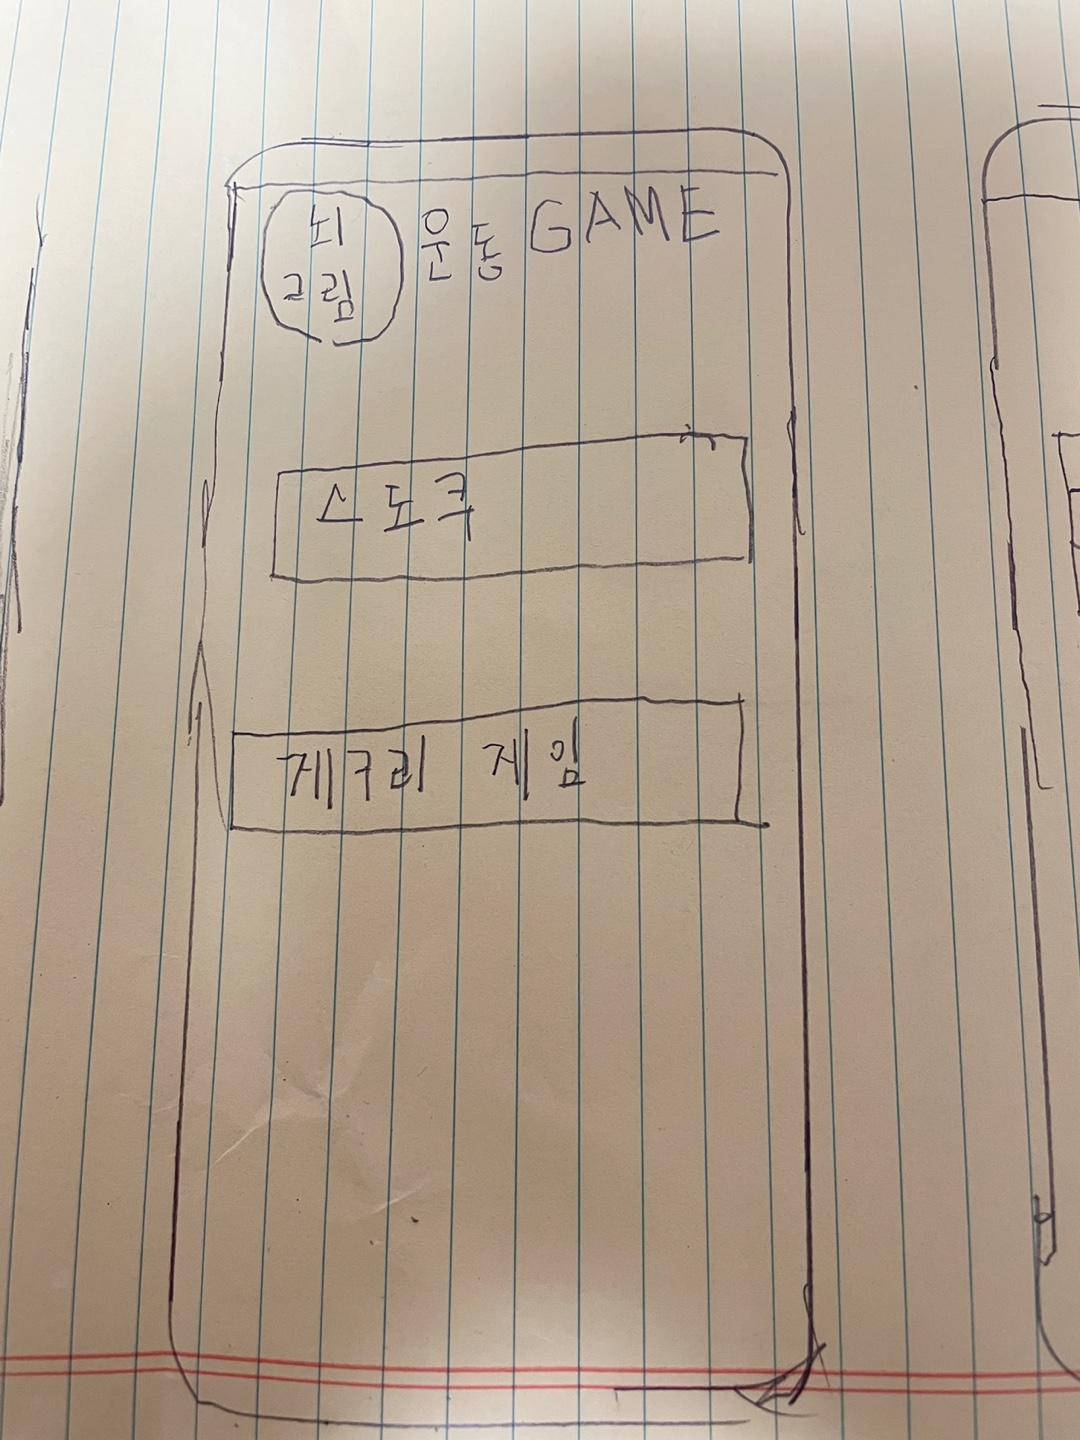 뇌
그림
운동 GAME
스도쿠
게구리 게임